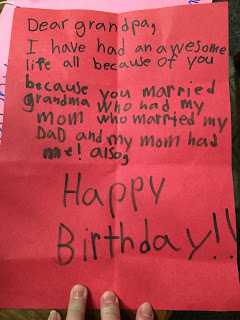 Dear grandpa,
I have had an awesome
life all because of you
because you married
grandma who had my
mom who married my
DaD and my mom had
me! also,
Happy
Birthday!!